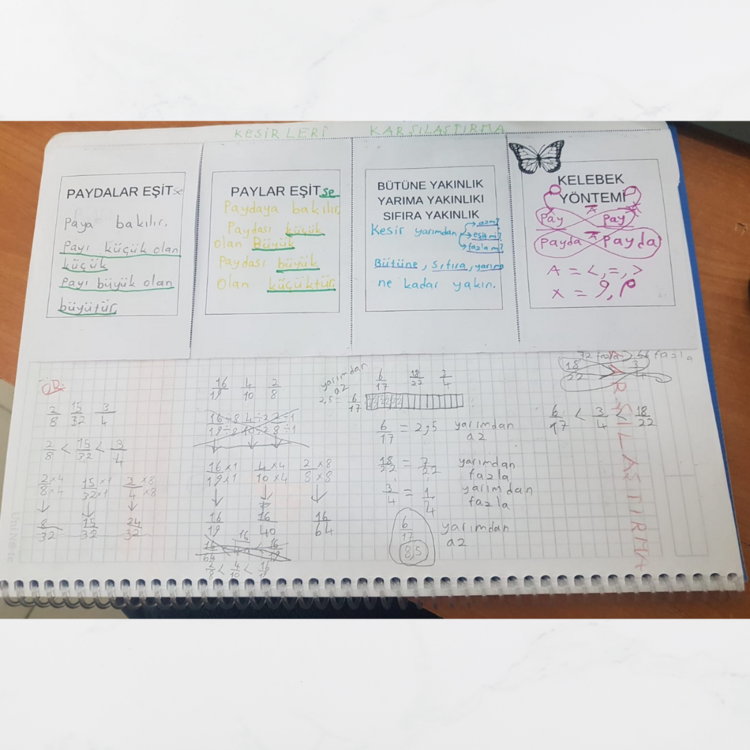 KESİRLERİ KARŞILAŞTIRMA
PAYDALAR EŞİTse
Paya bakılır.
Payı küçük olan
küçük
Payı büyük olan
büyütür.
PAYLAR EŞİTse
Paydaya bakılır.
Paydası küçük
olan Büyük
Paydası büyük
olan küçüktür.
BÜTÜNE YAKINLIK
YARIMA YAKINLIKI
SIFIRA YAKINLIK
Kesir yarımdan
eşit mi?
fazla mı?
Bütüne, sıfıra, yarıma
ne kadar yakın.
KELEBEK
YÖNTEMİ
Pay Pay
payda payda
A = <, =, >
2/8 15/32 3/4
2/8 < 15/32 < 3/4
2×4/8×4 15×1/32×1 3×8/4×8
8/32 15/32 24/32
16/19 4/10 2/8
16×1/19×1 4×4/10×4 2×8/8×8
16/19 16/40 16/64
2/8 < 4/10 < 16/19
yarımdan
az
6/17 18/22 3/4
2,5 = 6/17
6/17 = 2,5 yarımdan
az
18/22 = 7/22 yarımdan
fazla
3/4 = 1/4 yarımdan
fazla
6/17 yarımdan
2,5 az
fazla
18/22 3/4
6/17 < 3/4 < 18/22
KARŞILAŞTIRMA